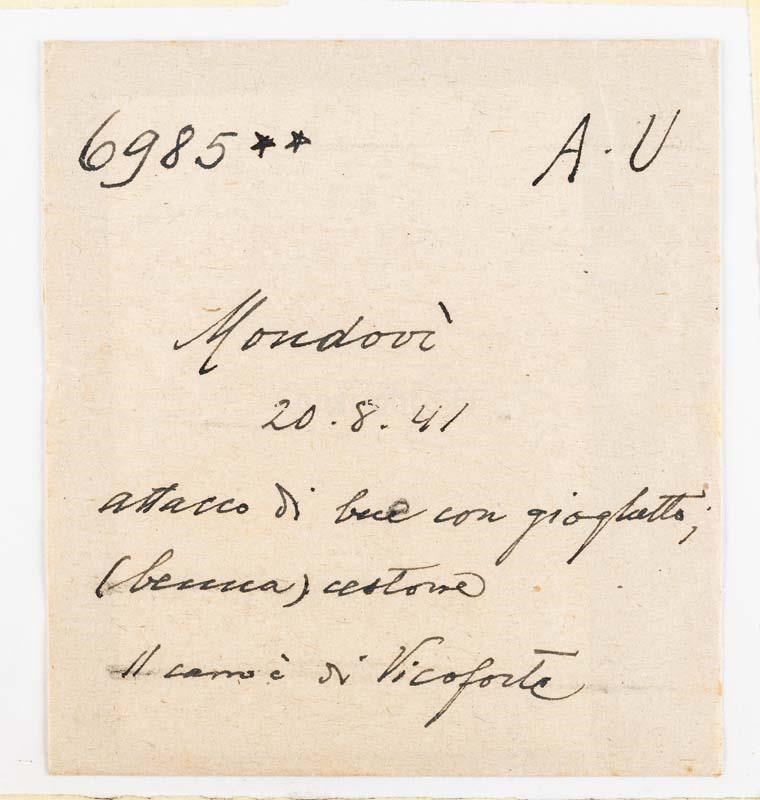 6985** A. U
Mondovì
20. 8. 41
attacco di bue con gioghetto;
(benna) cestone
Il carro è di Vicoforte